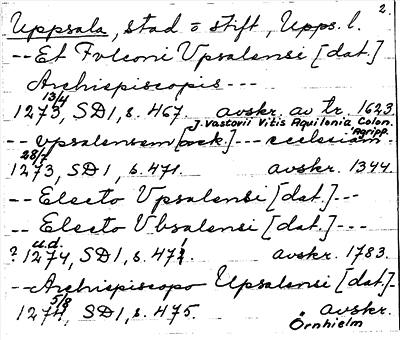 2.
Uppsala, stad o stift, Upps. l.
-- Et Fvlconi Vpsalensi [dat.]
Archiepiscopis ---
13/4
1273, SD1, s. 467. avskr. av tr. 1623
J. Vastovii Vitis Aquilonia Colon. Agripp.
-- vpsalensem [ack.] --- ecclesiam
28/7
1273, SD1, s. 471. avskr. 1344
-- Electo Vpsalensi [dat.] --
-- Electo Vbsalensi [dat.] ---
u.d.
? 1274, SD1, s. 471. avskr. 1783.
-- Archiepiscopo Upsalensi [dat.] -
5/8
1274, SD1, s. 475. avskr.
Örnhielm